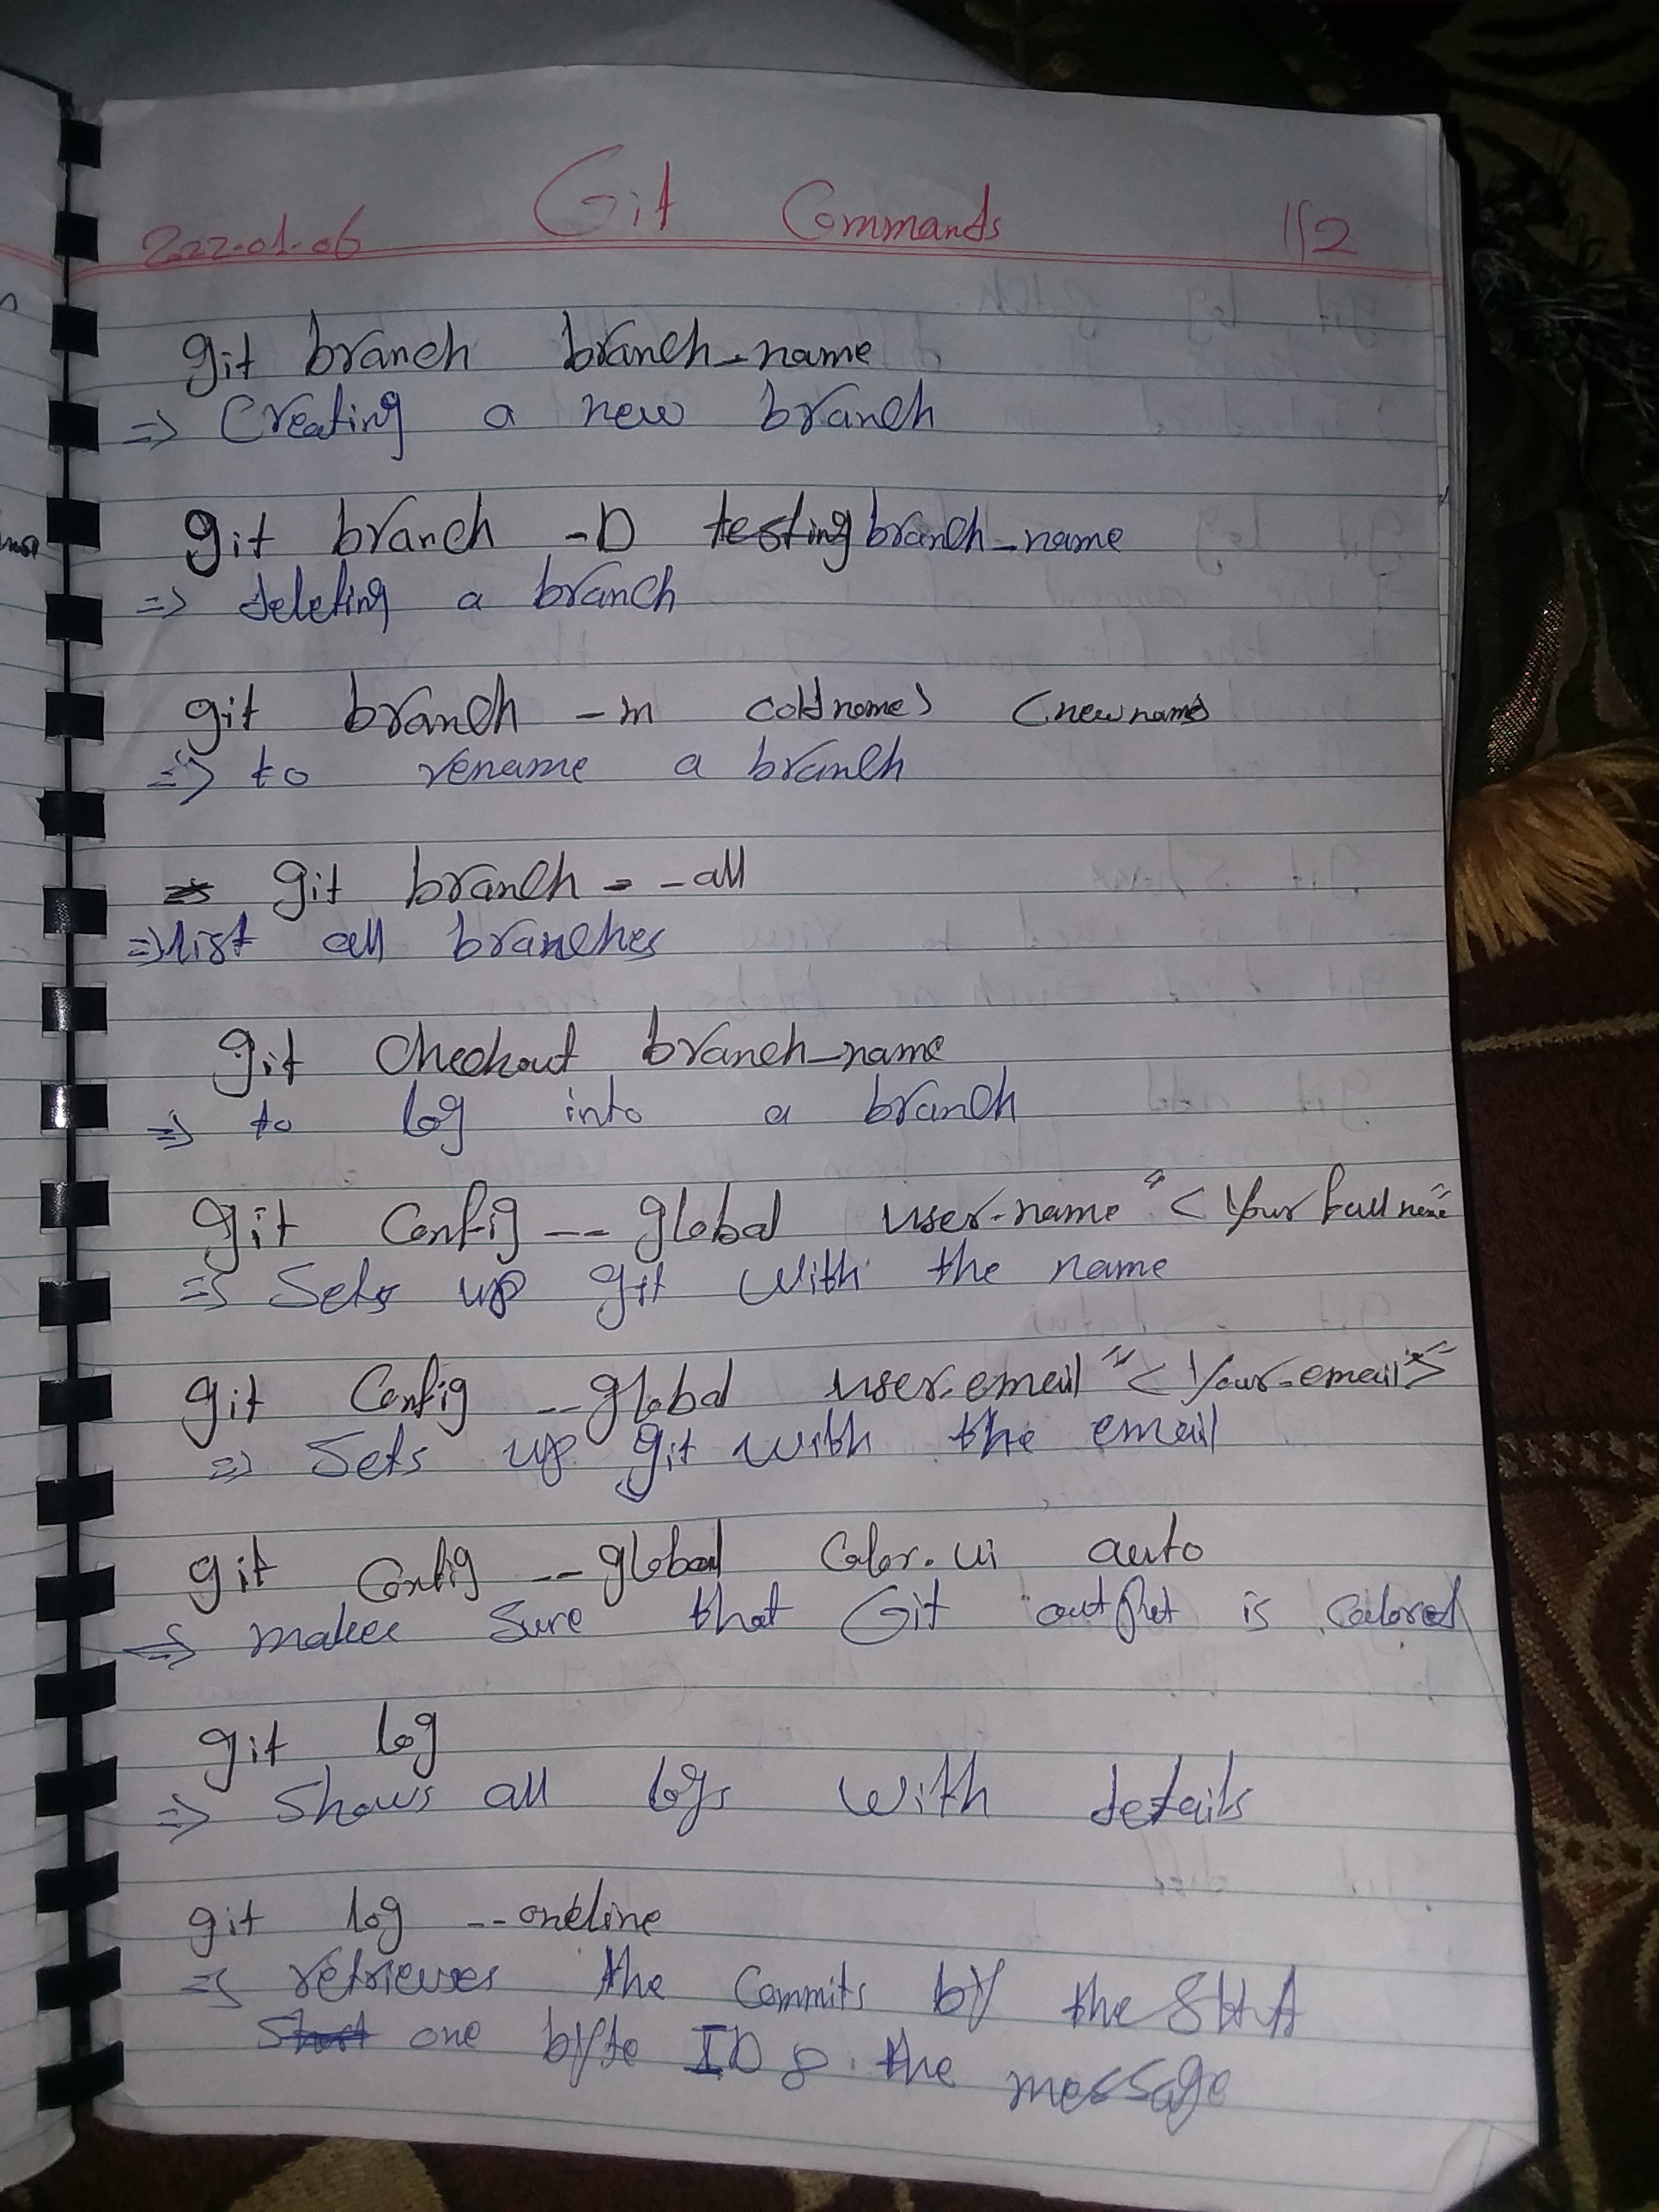 2022-01-06 Git Commands 1/2
git branch branch_name
=> Creating a new branch
git branch -D testing branch_name
=> deleting a branch
git branch -m <oldname> <newname>
=> to rename a branch
git branch --all
=> list all branches
git checkout branch_name
=> to log into a branch
git config --global user.name "<Your full name"
=> Sets up git with the name
git config --global user.email "<Your-email">
=> Sets up git with the email
git config --global color.ui auto
=> makes sure that Git output is colored
git log
=> Shows all logs with details
git log --oneline
=> retrieves the commits by the SHA
Short one byte ID & the message